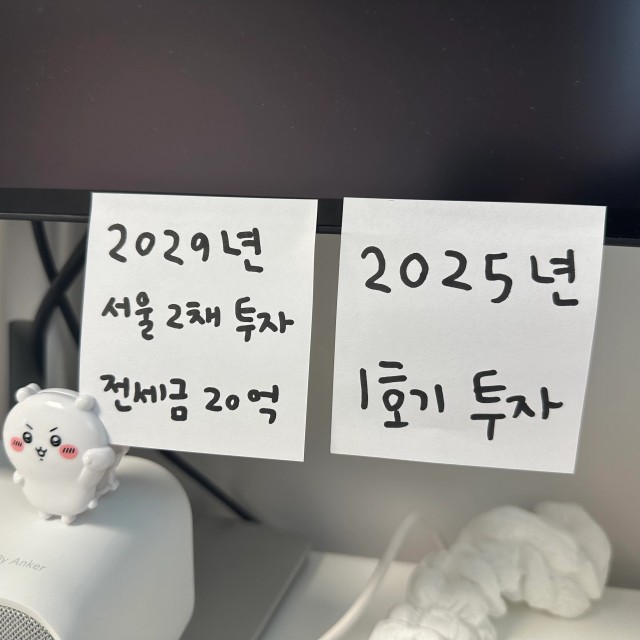 2029년
서울 2채 투자
전세금 20억
2025년
1호기 투자
By Anker